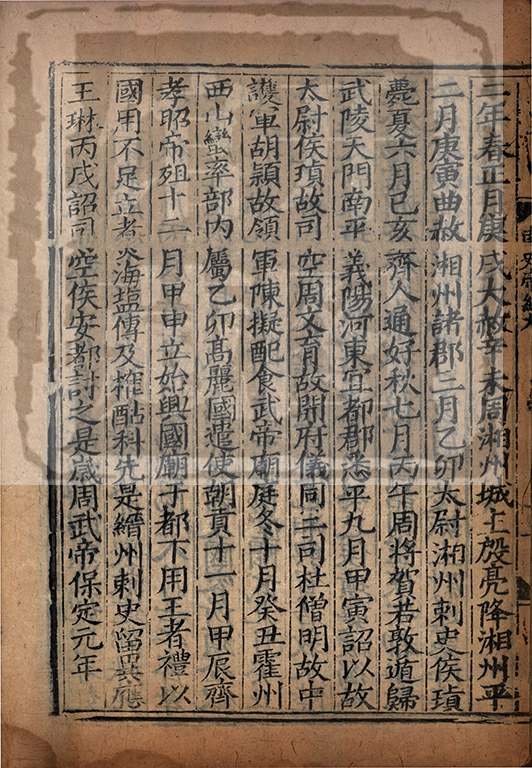 二年春正月庚戌大赦辛未周湘州城主殷亮降湘州平
二月庚寅曲赦湘州諸郡三月乙卯太尉湘州刺史侯瑱
薨夏六月己亥齊人通好秋七月丙午周將賀若敦遁歸
武陵天門南平義陽河東宜都郡悉平九月甲寅詔以故
太尉侯瑱故司空周文育故開府儀同三司杜僧明故中
護軍胡穎故領軍陳擬配食武帝廟庭冬十月癸丑霍州
西山蠻率部內屬乙卯高麗國遣使朝貢十一月甲辰齊
孝昭帝殂十二月甲申立始興國廟于都下用王者禮以
國用不足立煮海鹽傳及榷酤科先是縉州刺史留異應
王琳丙戌詔司空侯安都討之是歲周武帝保定元年